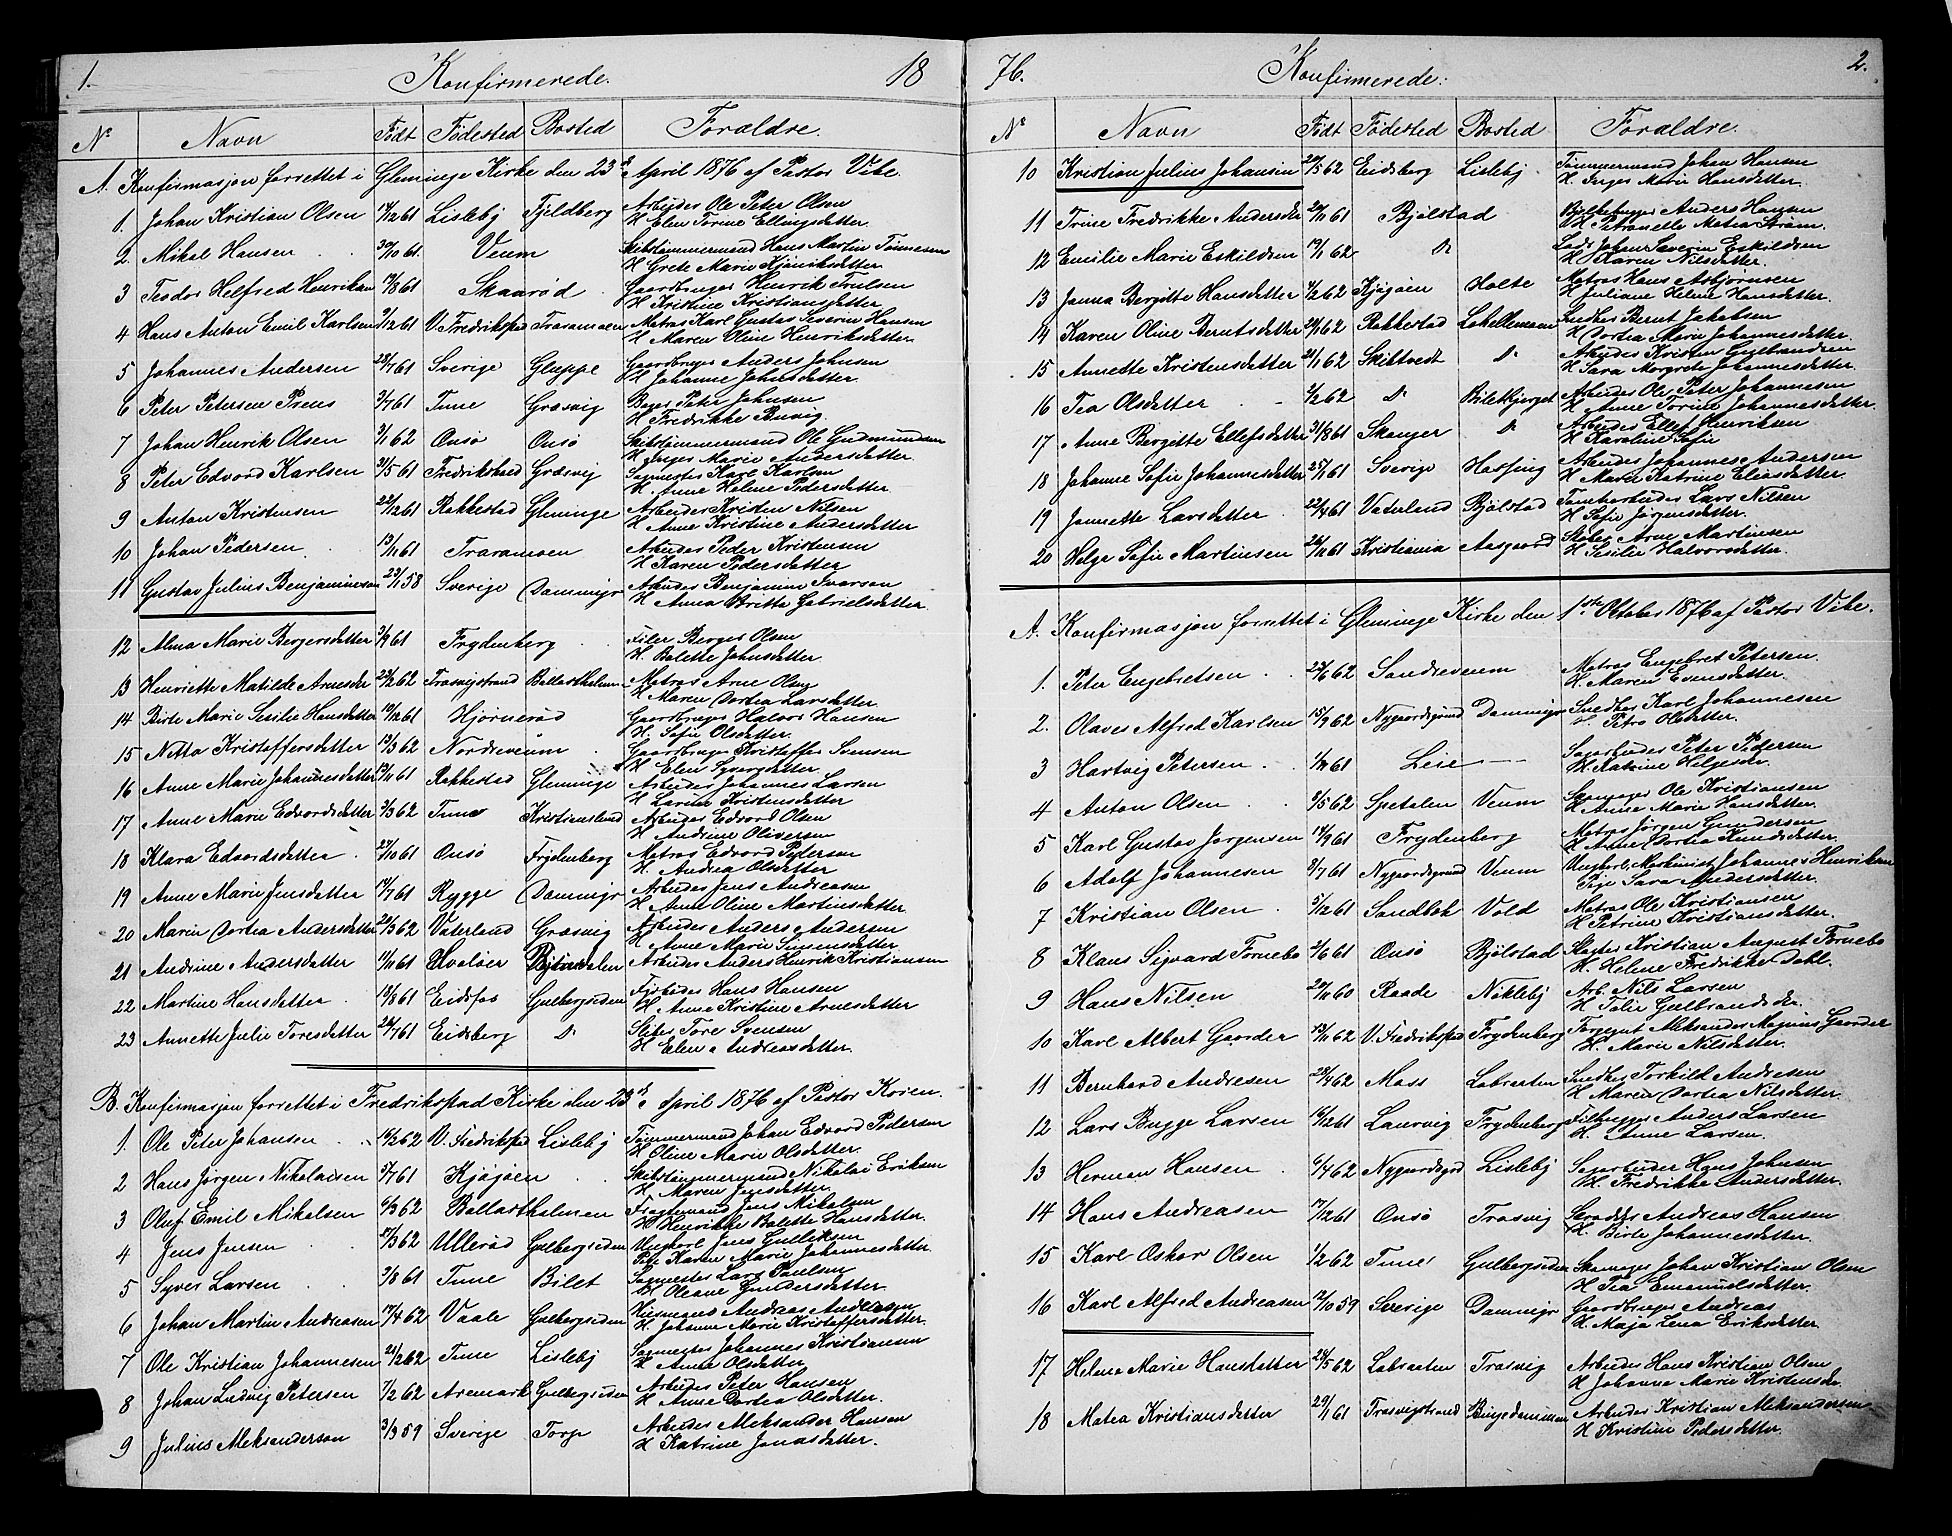 1. Konfirmerede. 18
No Navn Født Fødested Bosted Forældre.
A. Konfirmasjon forrettet i Glemminge Kirke den 23de April 1876 af Pastor Vibe.
1. Johan Kristian Olsen 12/61 Lisleby Fjeldberg Arbeider Ole Peter Olsen
H. Elen Torine Ellingsdatter
2. Mikal Hansen 30/10 61. Veum Skibstømmermand Hans Martin Tønnesen
H. Grete Marie
3 Teodor Helfred Henriksen 8/61 Skaarød Gaardbruger Henrik Trulsen
H. Kristine Kristiansdatter
4 Hans Anton Emil Karlsen 12/61 V. Fredrikstad Traramoen Matros Karl Gustav Severin Hansen
H. Maren Oline Henriksdatter
5 Johannes Andersen 28/7 61 Sverige Gluppe Gaardbruger Anders Johnsen
H. Johanne Johnsdatter
6 Peter Petersen Prens 7/61 Tune Græsvig Bager Peter Johnsen
H. Fredrikke
7 Johan Henrik Olsen 3/1 62 Onsø Onsø Skibstømmermand Ole Gudmundsen
H. Inger Marie Andersdatter
8 Peter Edvard Karlsen 5/61 Fredrikshald Græsvig Sagmester Karl Karlsen
H. Anne Helene Pedersdatter
9 Anton Kristensen 22/12 61 Rakkestad Glemminge Arbeider Kristen Nilsen
H. Anne Kristine Andersdatter
10 Johan Pedersen 13/11 61 Traramoen Arbeider Peder Kristensen
H. Karen Pedersdatter
11 Gustav Julius Benjaminsen 23/1 58 Sverige Dammyr Arbeider Benjamin Ivarsen
H. Anna Britta Gabrielsdatter
12 Alma Marie Bergersdatter 9/61 Frydenberg Filer Berger Olsen
H. Balette Johnsdatter
13 Henriette Matilde Arnesdtr 2/62 Trosvigstrand Ballastholmen Matros Arne Olsen
H. Maren Dortea Larsdatter
14 Birte Marie Sesilie Hansdatter 12/61 Hjørnerød Gaardbruger Halvor Hansen
H. Sofie Olsdatter
15 Netta Kristoffersdatter 3/62 Nordreveum Gaardbruger Kristoffer Svensen
H. Elen Syversdatter
16 Anne Marie Johannesdatter 11/61 Rakkestad Glemminge Arbeider Johannes Larsen
H. Larine Kristensdatter
17 Anne Marie Edvardsdatter 3/62 Tune Kristianslund Arbeider Edvard Olsen
H. Andrine Oliversen
18 Klara Edvardsdatter 27/10 61 Onsø Frydenberg Matros Edvard Petersen
H. Andrea Olsdatter
19 Anne Marie Jensdatter 7/61 Rygge Dammyr Arbeider Jens Andreasen
H. Anne Oline Martinsdatter
20 Maren Dortea Andersdatter 3/62 Vaterland Græsvig Arbeider Anders Andersen
H. Anne Marie Simensdatter
21 Andrine Andersdatter 11/61 Hvaløer Arbeider Anders Henrik Kristiansen
22 Martine Hansdatter 8/61 Eidsfos Gulbergsiden Fyrbøder Hans Hansen
H. Anne Kristine Arnesdatter
23 Annette Julie Toresdatter 7/61 Eidsberg Do Sliber Tore Svensen
H. Elen Andreasdatter.
B. Konfirmasjon forrettet i Fredrikstad Kirke den 23de April 1876 af Pastor Koren.
1. Ole Peter Johansen 2/62 V. Fredrikstad Lisleby Tømmermand Johan Edvard Pedersen
H. Oline Marie Olsdatter
2 Hans Jørgen Nikolaisen 7/61 Kjøjøen Skibstømmermand Nikolai Eriksen
H. Maren Jensdatter.
3 Oluf Emil Mikalsen 6/3 62 Ballastholmen Fragtemand Jens Mikalsen
H. Henrikke Balette Hansdatter.
4 Jens Jensen 3/62 Ullerød Gulbergsiden Ungkarl Jens Gulliksen
Pige Karen Marie Johannesdatter
5 Syver Larsen 8/61 Tune Bilet Sagmester Lars Paulsen
H. Oleane Gundersdatter
6 Johan Martin Andreasen 17/4 62 Vaale Gulbergsiden Husmand Andreas Andreasen
H. Johanne Marie Kristoffersdatter.
7 Ole Kristian Johannesen 21/2 62 Tune Lisleby Sagmester Johannes Kristiansen
H. Anne Olsdatter
8 Johan Ludvig Petersen 7/2 62 Aremark Gulbergsiden Arbeider Peter Hansen
H. Anne Dortea Olsdatter.
9 Julius Aleksandersen 3/59 Sverige Torp Arbeider Aleksander Hansen
H. Katrine Jonasdatter.
76. Konfirmerede. 2.
No Navn Født Fødested Bosted Forældre.
10 Kristian Julius Johansen 5/62 Eidsberg Lisleby Tømmermand Johan Hansen
H. Inger Marie Hansdatter.
11 Trine Fredrikke Andersdtr 11/61 Bjølstad Anders Hansen
H. Petronelle Matea Strøm
12 Emilie Marie Eskildsen 19/1 62 Do Lods Johan Severin Eskildsen
H. Karen Nilsdatter.
13 Janna Bergitte Hansdatter 2/62 Kjøjøen Holte Matros Hans Asbjørnsen
H. Juliane Helene Hansdatter.
14 Karen Oline Berntsdatter 1/62 Rakkestad Snedker Bernt Jakobsen
H. Dortea Marie Johannesdatter
15 Annette Kristensdatter 21/1 62 Skiltvedt Do Arbeider Kristen Gulbrandsen
H. Sara Margrete Johannesdatter.
16 Tea Olsdatter 2/62 Do Biletbjerget Arbeider Ole Peter Johannesen
H. Anne Torine Johannesdatter.
17 Anne Bergitte Ellefsdatter 31/8 61 Skanger Do Arbeider Ellef Henriksen
H. Karoline Sofie
18 Johanne Sofie Johannesdatter 25/1 61 Sverige Arbeider Johannes Andersen
H. Maria Katrine Eliasdatter.
19 Jannette Larsdatter 22/4 61 Vaterland Bjølstad Tomtearbeider Lars Nilsen
H. Sofie Jørgensdatter.
20 Helga Sofie Martinsen 61 Kristiania Aasgaard Arne Martinsen
H. Sesilie Halvorsdatter.
A. Konfirmasjon forrettet i Glemminge Kirke den 1ste Oktober 1876 af Pastor Vibe.
1. Peter Engebretsen 6/62 Søndreveum Matros Engebret Petersen.
H. Maren Evensdatter.
2. Olaves Alfred Karlsen 15/9 62 Nygaardsgrund Dammyr Snedker Karl Johannesen
H. Petra Olsdatter.
3 Hartvig Petersen 61 Leie Sagarbeider Peter Pedersen
H. Katrine Helgesdr.
4 Anton Olsen 5/62 Spetalen Veum Skomager Ole Kristiansen
H. Anne Marie Hansdatter.
5 Karl Gustav Jørgensen 9/61 Frydenberg Matros Jørgen Gundersen
H. Anne Dortea Knudsdatter
6 Adolf Johannesen 7/61 Nygaardsgrund Veum Ungkarl, Maskinist Johannes Henriksen
Pige Sara Andersdatter.
7 Kristian Olsen 12/61 Sandbæk Vold Matros Ole Kristiansen
H. Petrine Kristiansdatter.
8 Klaus Sigvard Fornebo 6/61 Onsø Bjølstad Slagter Kristian August Fornebo
H. Helene Fredrikke Dahl.
9 Hans Nilsen 60 Raade Nøkleby Arb. Nils Larsen
H. Talie Gulbrandsdr.
10 Karl Albert Gaarder 62 V. Fredrikstad Frydenberg Aleksander Magnus Gaarder
H. Marie Nilsdatter.
11 Bernhard Andresen 28/4 62 Moss Labraaten Snedker Torkild Andresen
H. Maren Dortea Nilsdatter
12 Lars Bugge Larsen 12/61 Laurvig Frydenberg Filhugger Anders Larsen
H. Anne Larsen.
13 Herman Hansen 6/4 62 Nygaardsgrd Lisleby Sagarbeider Hans Johnsen
H. Fredrikke Andersdatter.
14 Hans Andreasen 17/12 61 Onsø Trosvig Skrædder Andreas Hansen
H. Birte Johannesdatter.
15 Karl Oskar Olsen 1/2 62 Tune Gulbergsiden Skomager Johan Kristian Olsen
H. Tea Emanuelsdatter.
16 Karl Alfred Andreasen 10 59 Sverige Dammyr Gaardbruger Andreas
H. Maja Lena Eriksdatter.
17 Helene Marie Hansdatter 5/62 Labraaten Trosvig Arbeider Hans Kristian Olsen
H. Johanne Marie Kristensdr.
18 Matea Kristiansdatter 29/1 61 Trosvigstrand Arbeider Kristian Aleksandersen
H. Kristine Pedersdatter.